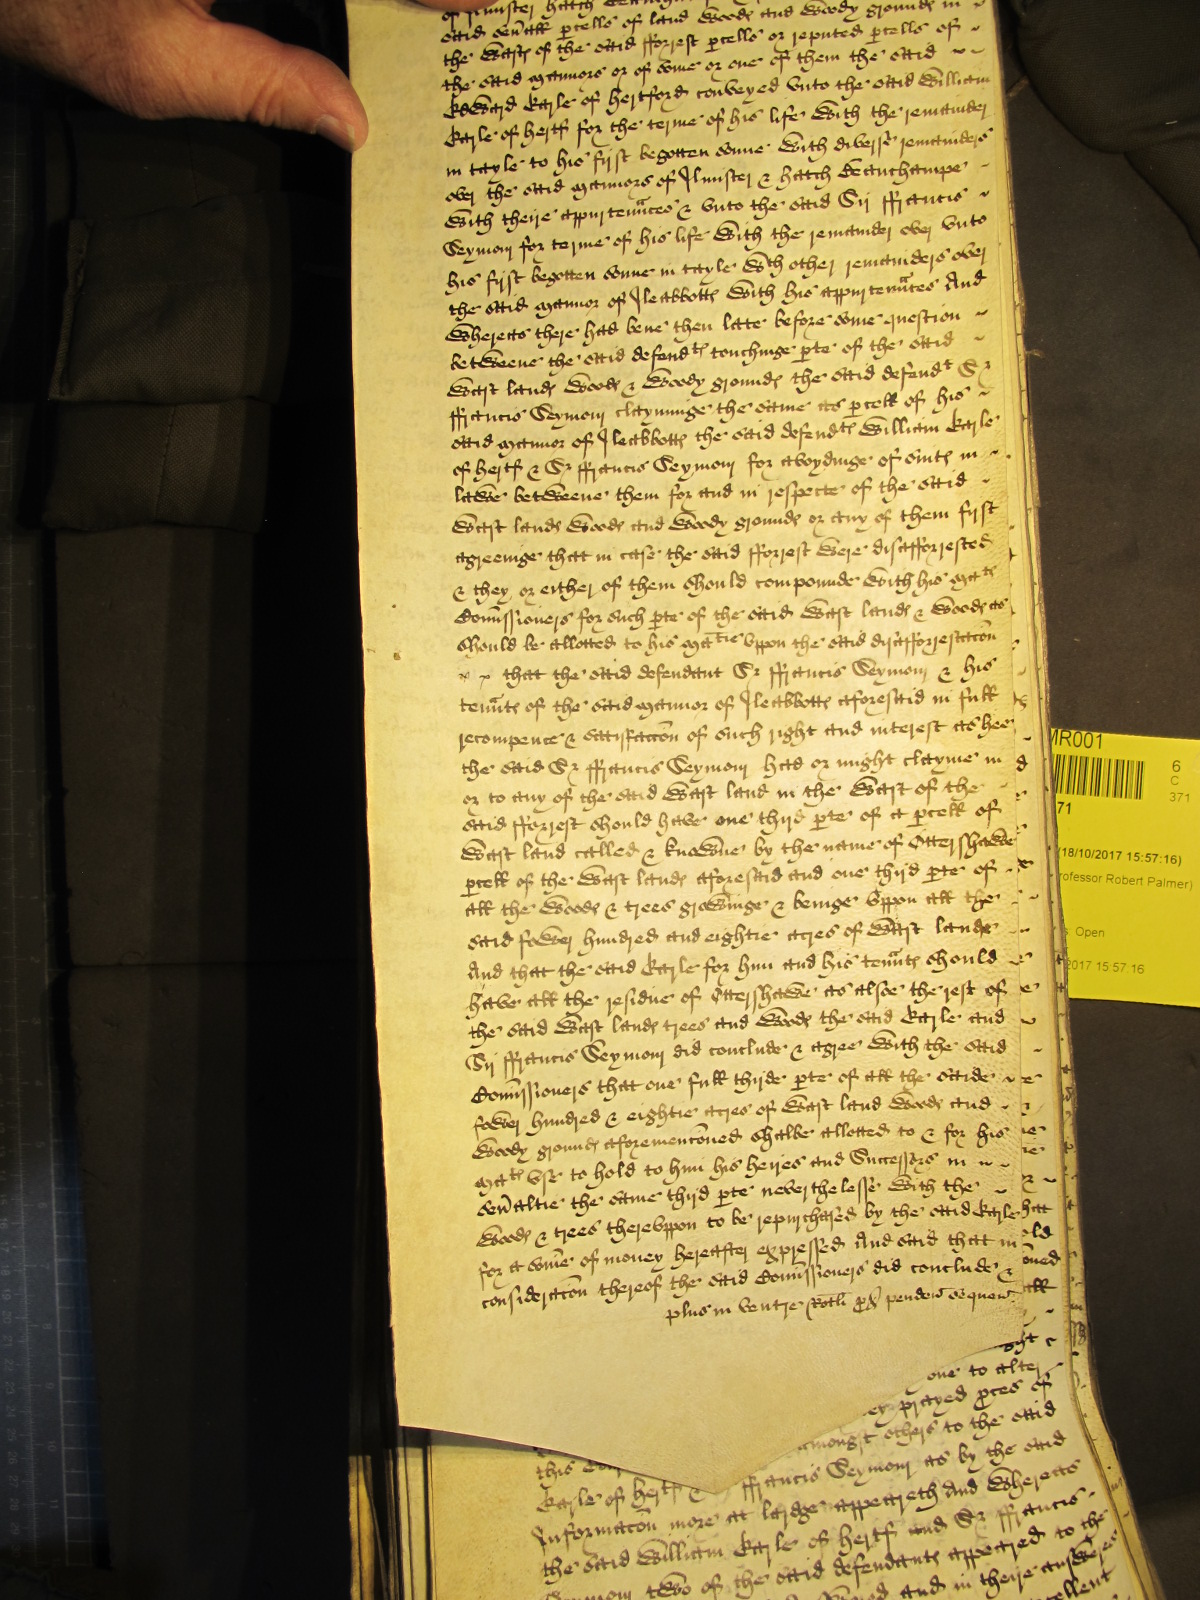 of Ilmister hatch Beauchampe
said sevall pcells of land woods and woody grounds in
the wast of the said fforrest pcells or reputed pcells of
the said mannors or of some or one of them the said
Edward Earle of hertford conveyed vnto the said William
Earle of hertf for the terme of his life with the remainder
in tayle to his first begotten sonne with divers remainders
over the said mannors of Ilmister & hatch Beauchampe
with theire appurtenũces & vnto the said Sir ffrancis
Seymour for terme of his life with the remainder over vnto
his first begotten sonne in tayle wth other remainders over
the said mannor of Ileabbotts with his appurtenũces And
whereas there had bene then late before some question
betweene the said defendts touchinge pte of the said
wast lands woods & woody grounds the said defendt Sr
ffrancis Seymour clayminge the same as pcell of his
said mannor of Ileabbotts the said defendts William Earle
of hertf & Sr ffrancis Seymour for avoydinge of suits in
lawe betweene them for and in respecte of the said
wast lands woods and woody grounds or any of them first
agreeinge that in case the said fforrest were disafforrested
& they or either of them should compounde with his mats
Comissioners for such pte of the said wast lands & woods as
should be allotted to his matie vppon the said disafforrestacon
that the said defendant Sr ffrancis Seymour & his
tenũts of the said mannor of Ileabbotts aforesaid in full
recompence & satisfaccon of such right and interest as hee
the said Sr ffrancis Seymour had or might clayme in
or to any of the said wast land in the wast of the
said fforrest should have one third pte of a pcell of
wast land called & knowne by the name of Ottershawe
pcell of the wast lands aforesaid and one third pte of
all the woods & trees growinge & beinge vppon all the
said fower hundred and eightie acres of wast lands
And that the said Earle for him and his tenũts should
have all the residue of Ottershawe as alsoe the rest of
the said wast lands trees and woods the said Earle and
Sir ffrancis Seymour did conclude & agree with the said
Comissioners that one full thirde pte of all the saide
fower hundred & eightie acres of wast land woods and
woody grounds aforemenconed shalbe allotted to & for his
mats vse to hold to him his heires and Successors in
sevaltie the same third pte neverthelesse with the
woods & trees therevppon to be repurchased by the said Earle
for a some of money hereafter expressed And said that in
consideracon thereof the said Comissioners did conclude &
plus in ventre Rotli px penden sequen
ght
one to alter
prayed pces of
amongst others to the said
this
Earle of hertf & ffrancis Seymour as by the said
Informacon more at lardge appeareth And whereas
the said William Earle of hertf and Sr ffrancis
Seymour two of the said defendants appeared to the
and in theire answeres
MR001
6
C
371
71
(18/10/2017 15:57:16)
rofessor Robert Palmer)
s: Open
2017 15:57:16